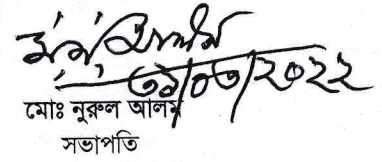 ৩১/০৩/২০২২
মোঃ নুরুল আলম
সভাপতি